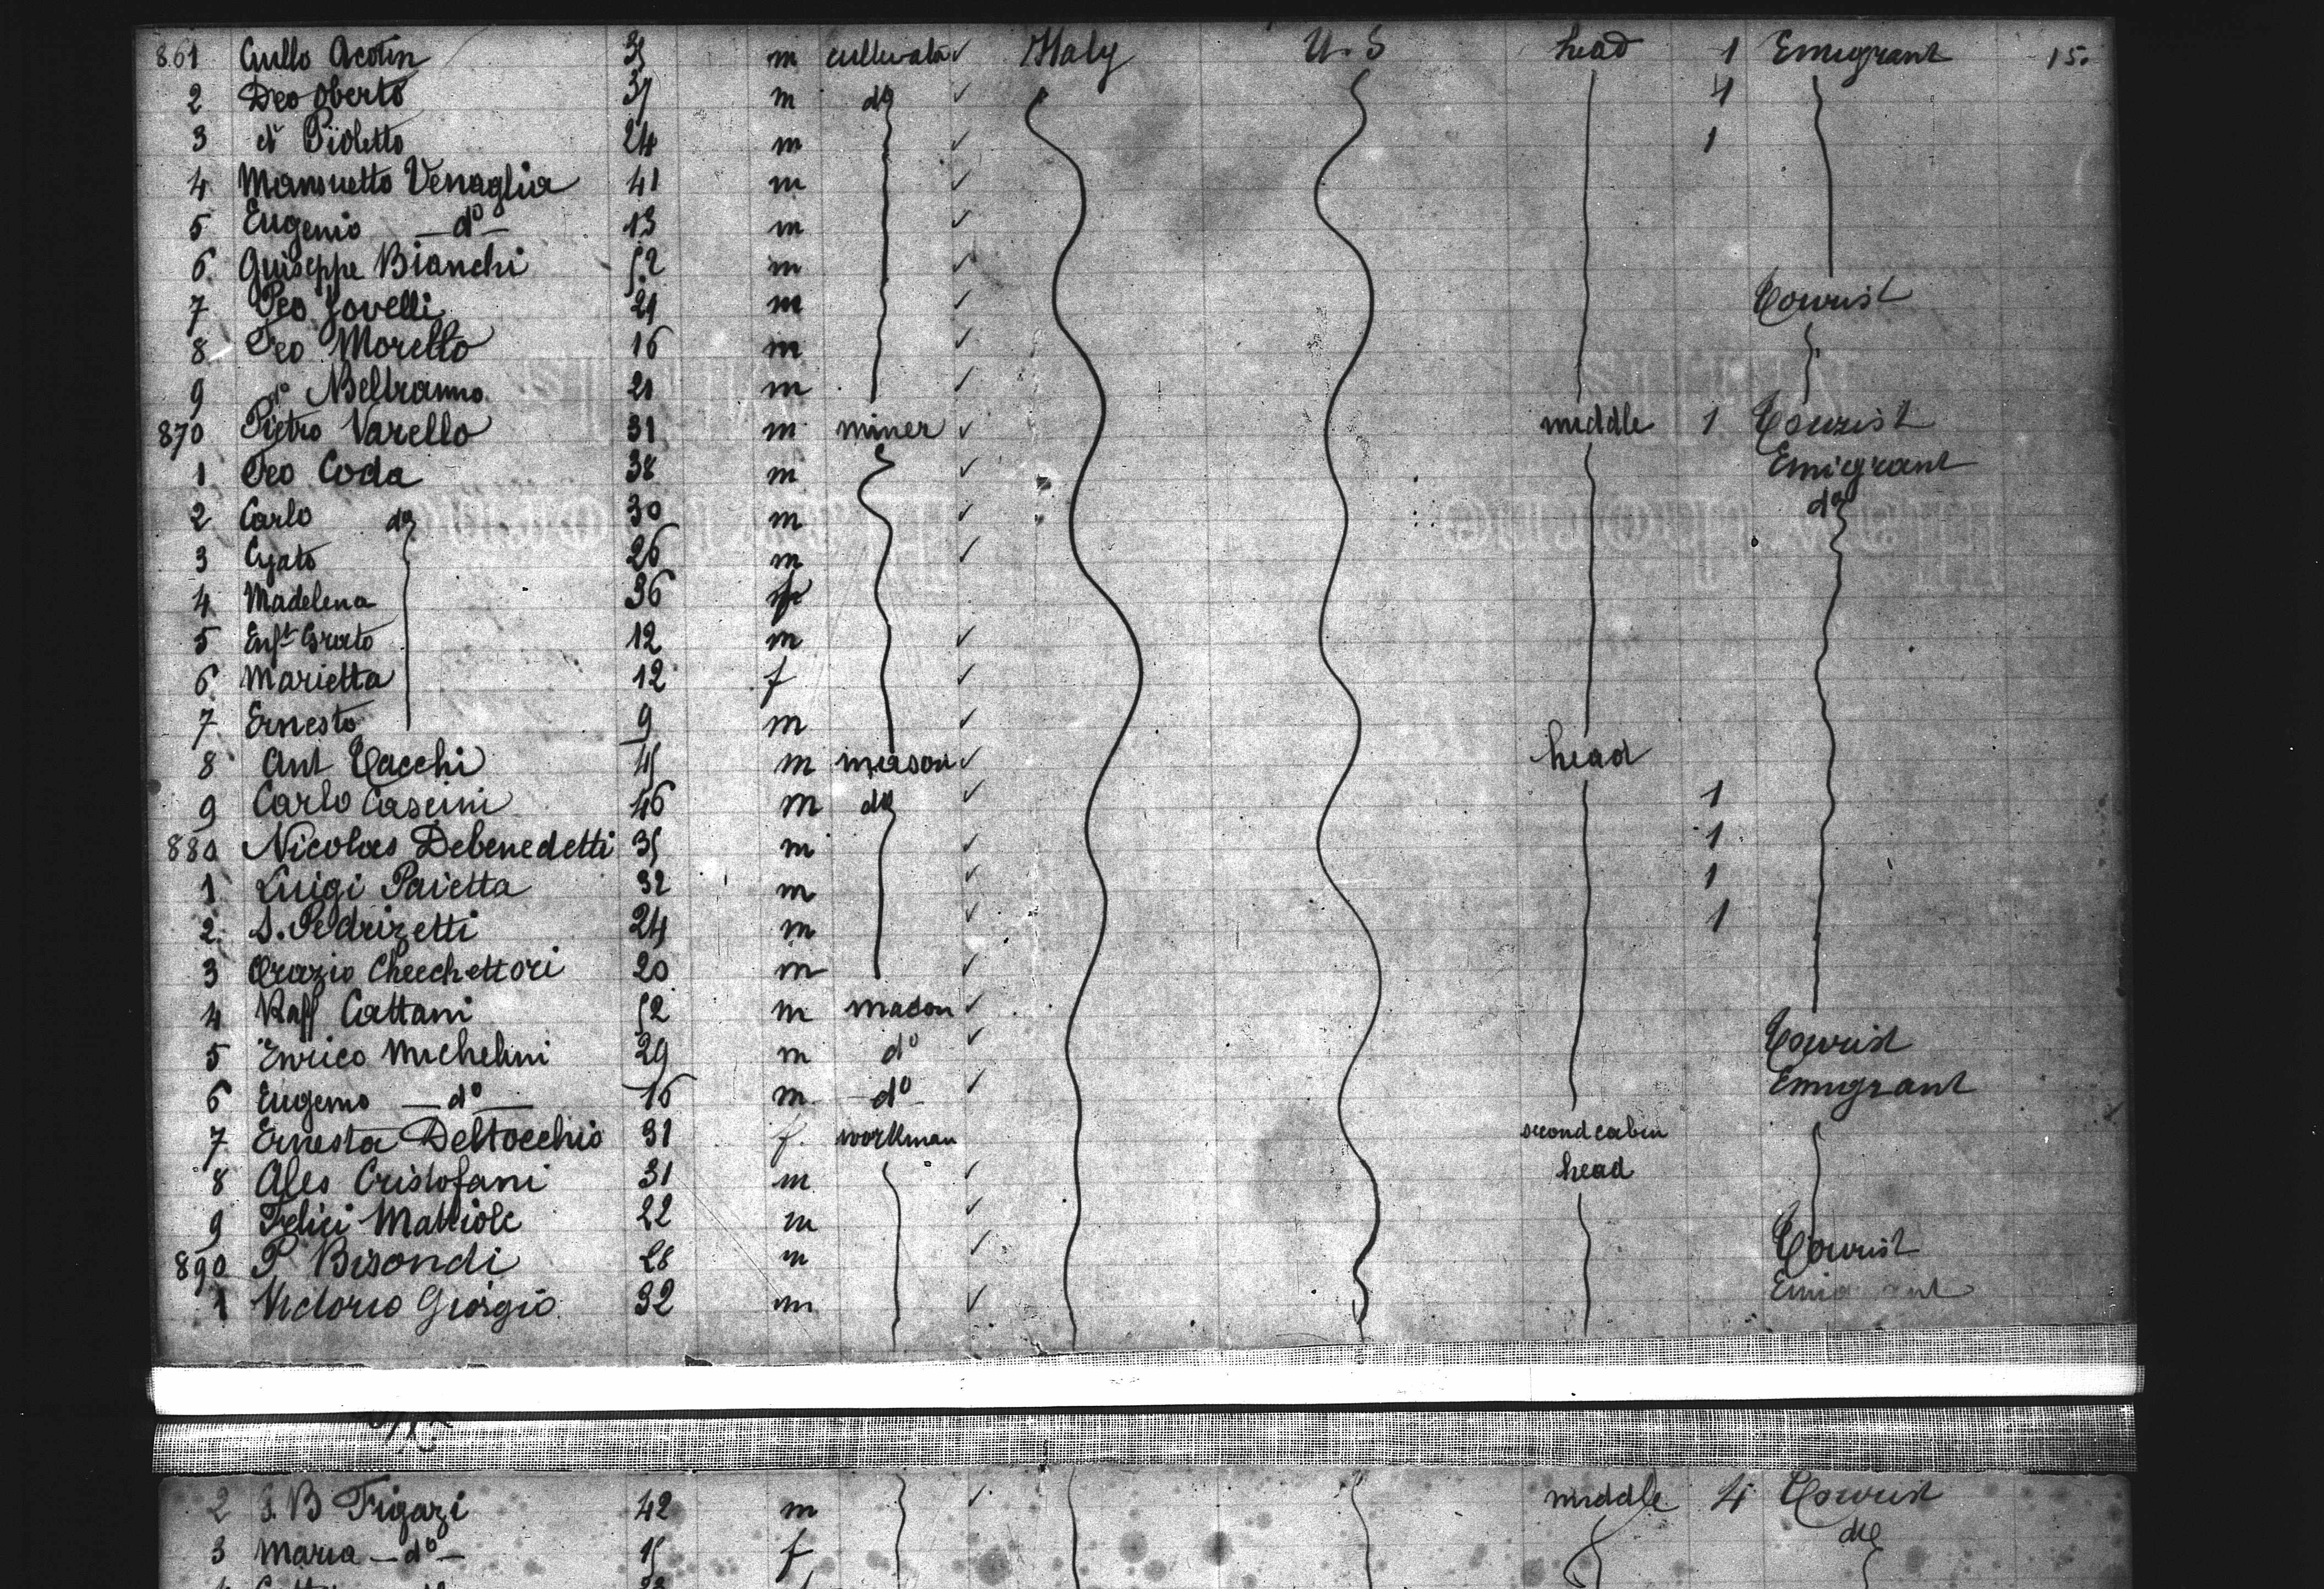 861 Cullo Acotin 35 m cultivator ✓ Italy U.S head 1 Emigrant 15.
2 Deo Oberto 37 m do ✓ 4
3 do Pioletto 24 m ✓ 1
4 Mansuetto Venaglia 41 m ✓
5 Eugenio — do — 13 m ✓
6 Guiseppe Bianchi 52 m ✓
7 Peo Jovelli 21 m ✓ Tourist
8 Peo Moretto 16 m ✓
9 do Beltramno 21 m ✓
870 Pietro Varello 31 m miner ✓ middle 1 Tourist
1 Peo Coda 38 m ✓ Emigrant
2 Carlo do 30 m ✓ do
3 26 m ✓
4 Madelena 36 f
5 Enft Grato 12 m ✓
6 Marietta 12 f ✓
7 Ernesto 9 m ✓
8 Ant Tacchi 45 m mason ✓ head
9 Carlo Cascini 46 m do ✓ 1
880 Nicolas Debenedetti 35 m ✓ 1
1 Luigi Paietta 32 m ✓ 1
2 S. Pedrizetti 24 m ✓ 1
3 Orazio Checchettori 20 m ✓
4 Raff Cattani 52 m mason ✓
5 Enrico Michelini 29 m do ✓ Tourist
6 Eugenio — do — 16 m do ✓ Emigrant
7 Ernesta Deltocchio 31 f. workman second cabin
8 Ales Cristofani 31 m ✓ head
9 Felici Mattiole 22 m ✓
890 P Bisondi 28 m ✓ Tourist
1 Victorio Giorgio 32 m ✓ Emigrant
2 G. B Figazi 42 m ✓ middle 4 Tourist
3 Maria — do — 15 f do